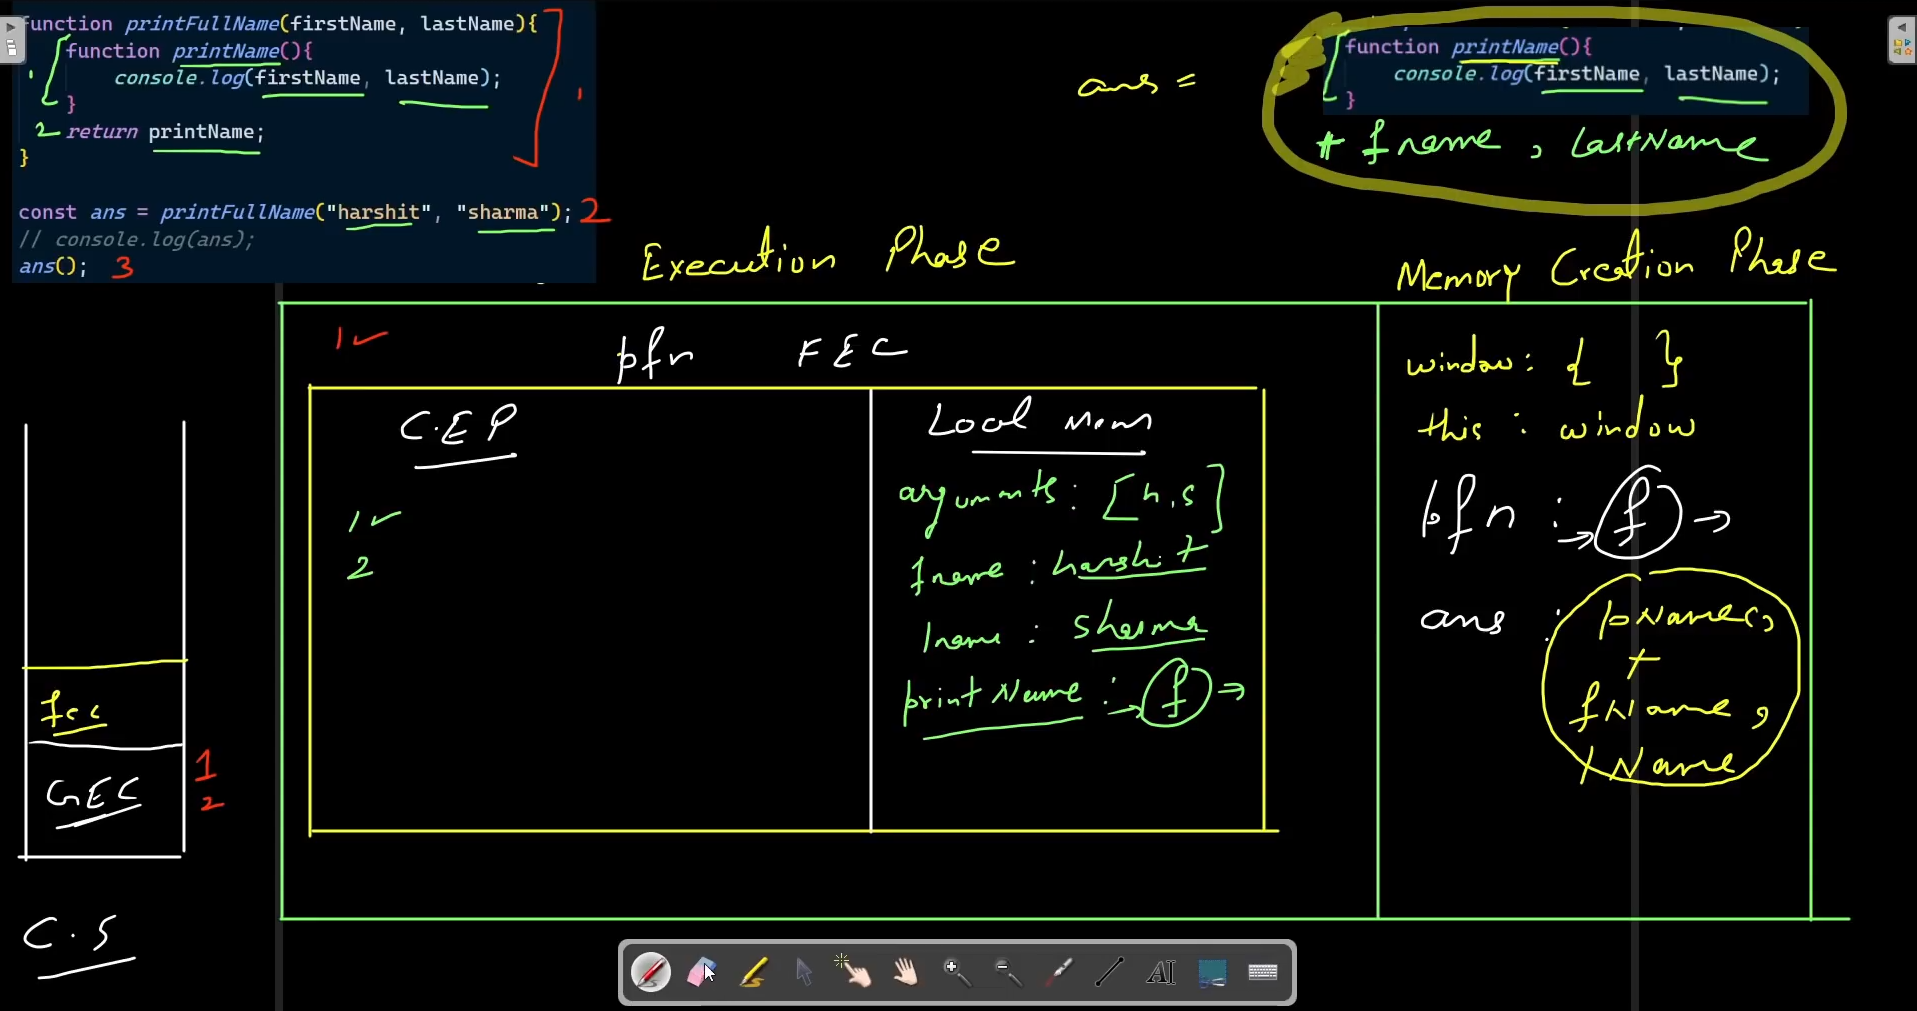 function printFullName(firstName, lastName){
function printName(){
console.log(firstName, lastName);
}
return printName;
}
const ans = printFullName("harshit", "sharma");
// console.log(ans);
ans();
1
2
1
2
3
ans =
function printName(){
console.log(firstName, lastName);
}
+ fname, lastName
Execution Phase
Memory Creation Phase
1 ✓
pfn FEC
C.E.P
1 ✓
2
Local Mem
arguments : [h, s]
fname : harshit
lname : sharma
printName : → f →
window : { }
this : window
pfn : → f →
ans : pName(),
+
fName,
lName
fec
GEC
1
2
C.S
AI